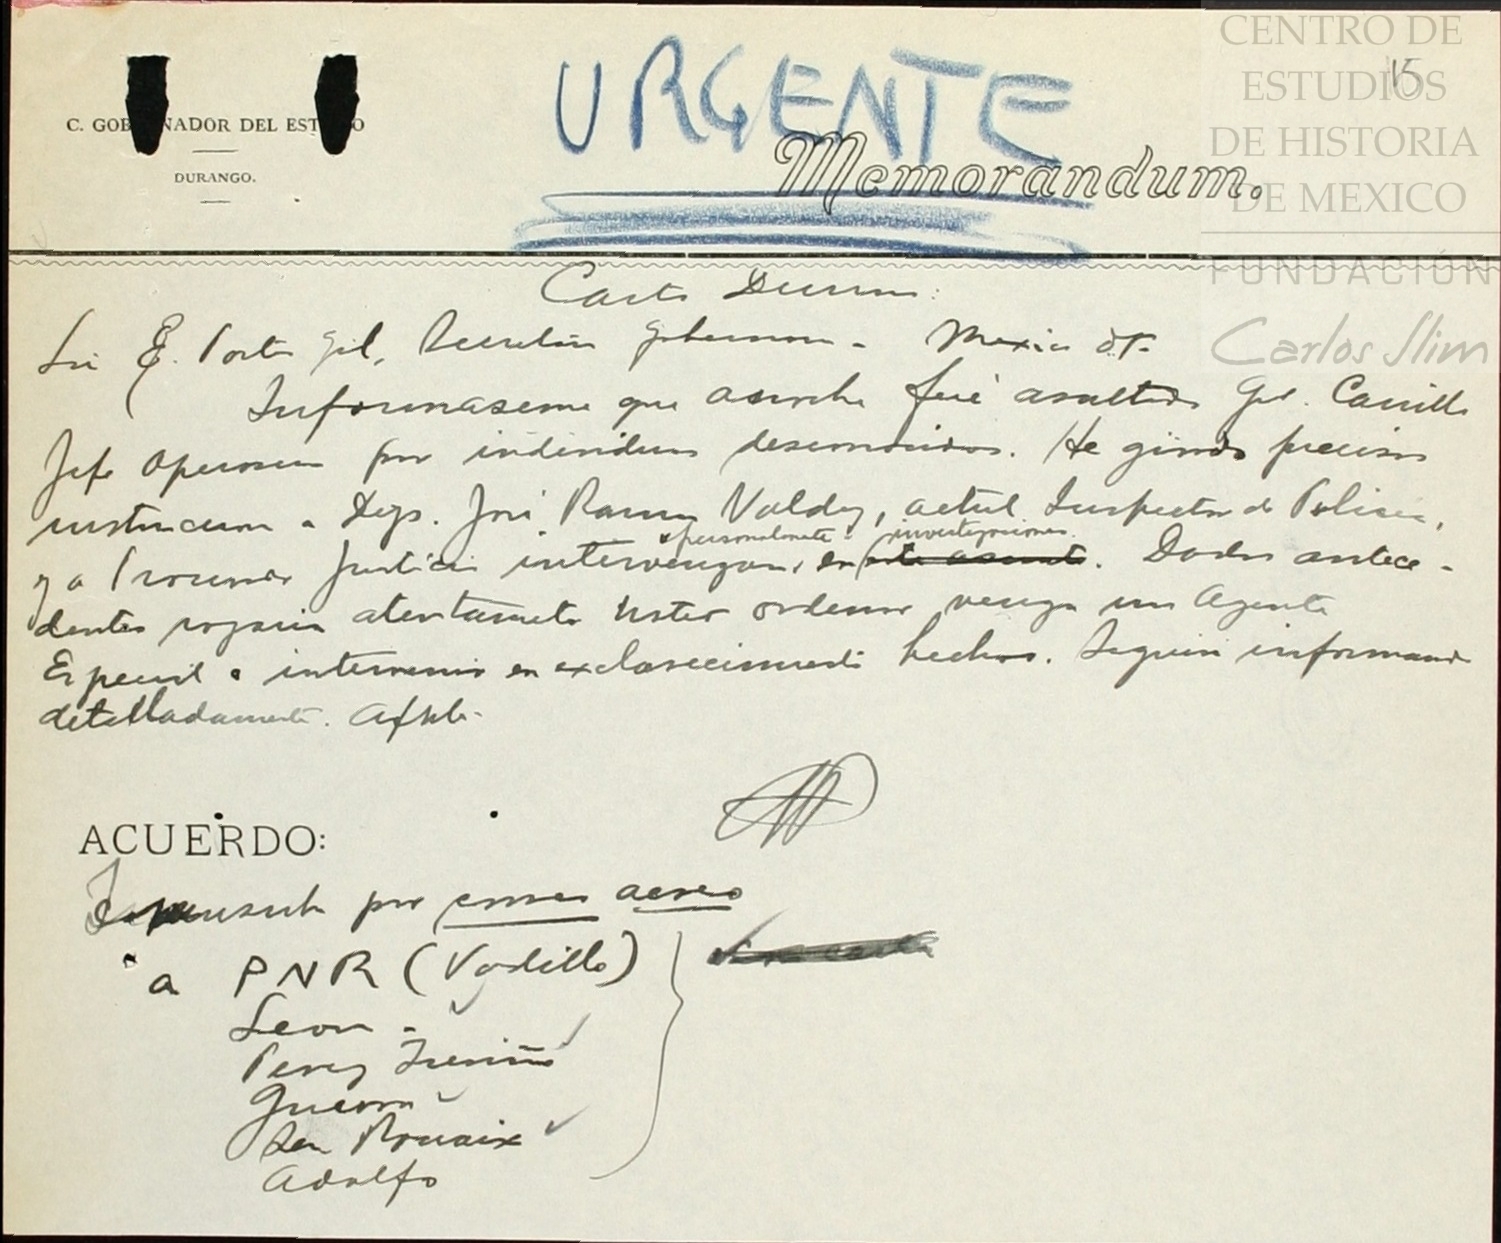 CENTRO DE
ESTUDIOS
DE HISTORIA
DE MEXICO
FUNDACIÓN
Carlos Slim
15
C. GOBERNADOR DEL ESTADO
DURANGO.
URGENTE
Memorandum.
Lic E. Portes Gil, Secretario Gobernacion - Mexico D.F.
Informaseme que anoche fué asaltado Gral. Carrillo
Jefe Operaciones por individuos desconocidos. He girado precisas
instrucciones a Dip. José Ramon Valdez, actual Inspector de Policia,
personalmente investigaciones.
y a Procurador Justicia intervengan en este asunto. Dados antece-
dentes rogaria atentamente Usted ordenar venga un Agente
Especial a intervenir en esclarecimiento hechos. Seguiré informando
detalladamente. Afte.
ACUERDO:
por correo aereo
a PNR (Vadillo)
Leon -
Perez Treviño
Guerra
Sen Rouaix
Adolfo